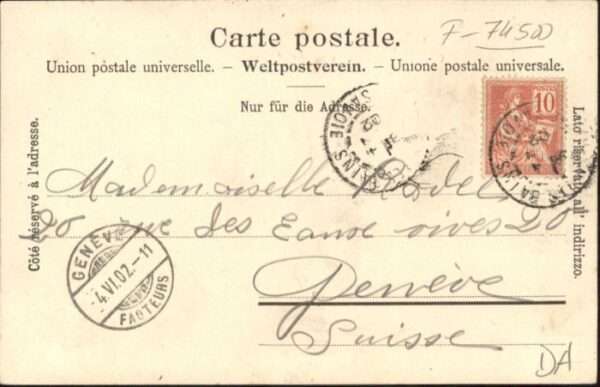 F-74500
Carte postale.
Union postale universelle. – Weltpostverein. – Unione postale universale.
Nur für die Adresse.
Côté réservé à l'adresse.
Lato riservato all' indirizzo.
10
BAINS
SAVOIE
Mademoiselle
20 rue des Eaux vives 20
Genève
Suisse
GENÈVE
-4.VI.02.-11
FACTEURS
DA